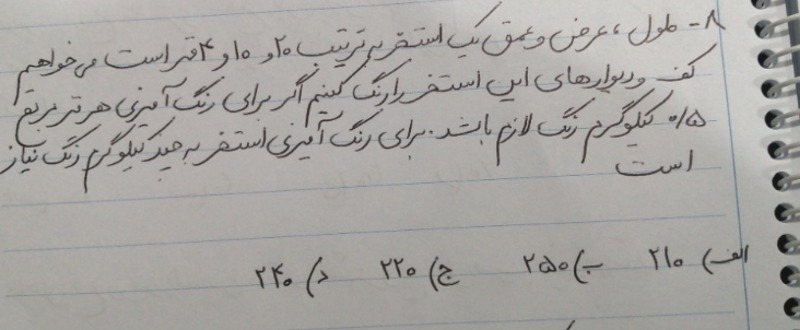 ۸- طول، عرض و عمق یک استخر به ترتیب ۲۰ و ۱۰ و ۴ متر است می‌خواهیم
کف و دیوارهای این استخر را رنگ کنیم اگر برای رنگ آمیزی هر متر مربع
۰/۵ کیلوگرم رنگ لازم باشد. برای رنگ آمیزی استخر به چند کیلوگرم رنگ نیاز
است
الف) ۲۱۰ ب) ۲۵۰ ج) ۲۲۰ د) ۲۴۰